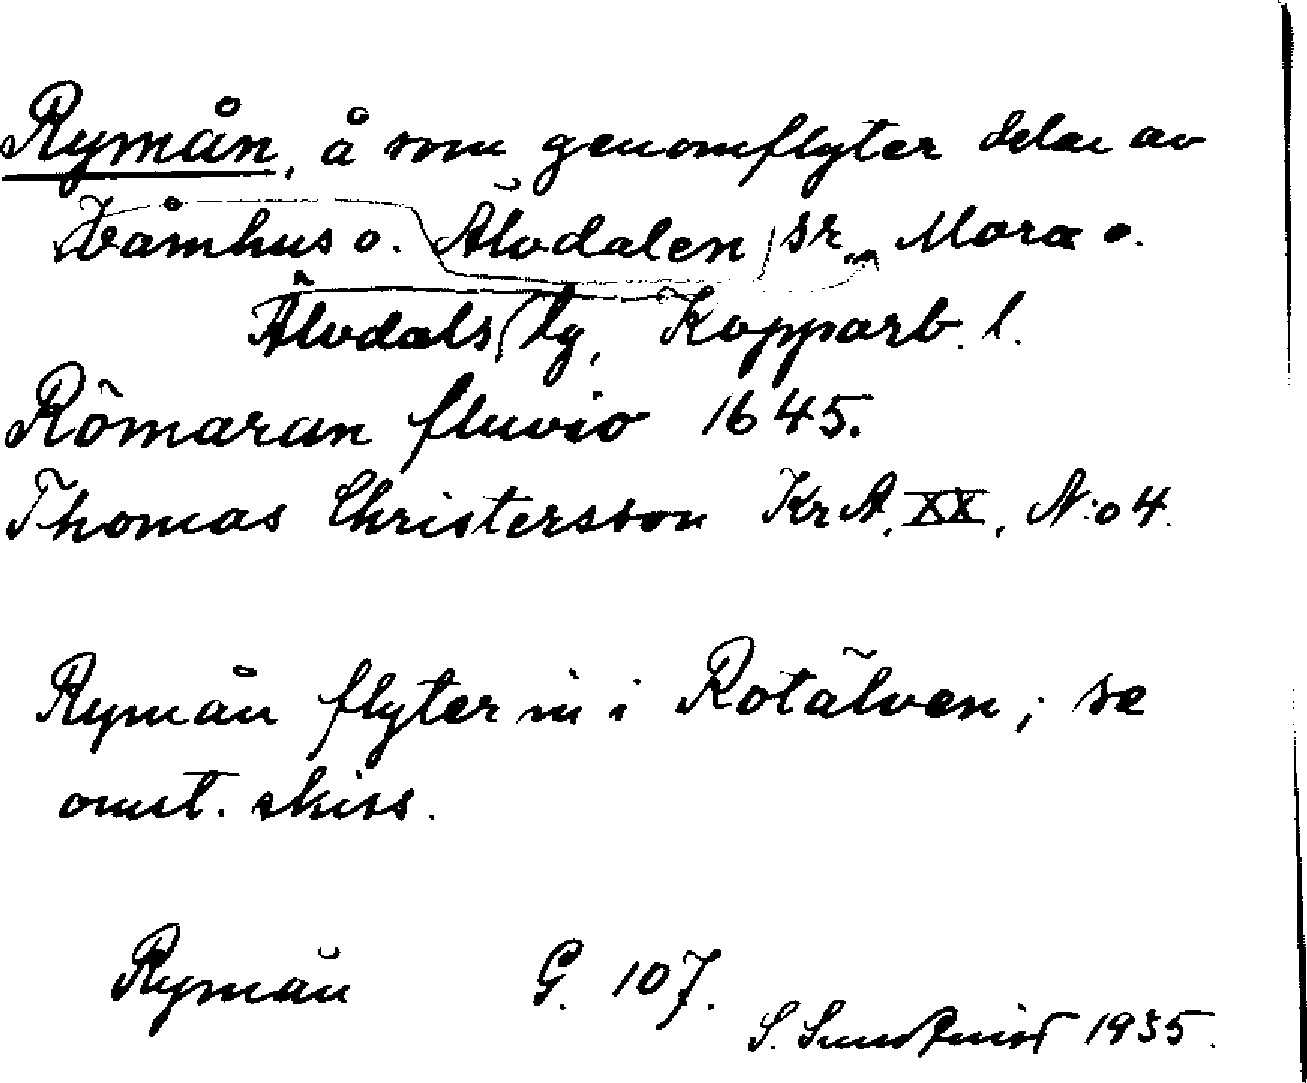 Rymån, å som genomflyter delar av
Våmhus o. Älvdalen sr, Mora o.
Älvdals tg, Kopparb. l.
Römaran fluvio 1645.
Thomas Christersson KrA. XX, N:o 4.
Rymån flyter in i Rotälven; se
omst. skiss.
Rymån G. 107.
S. Sundquist 1935.